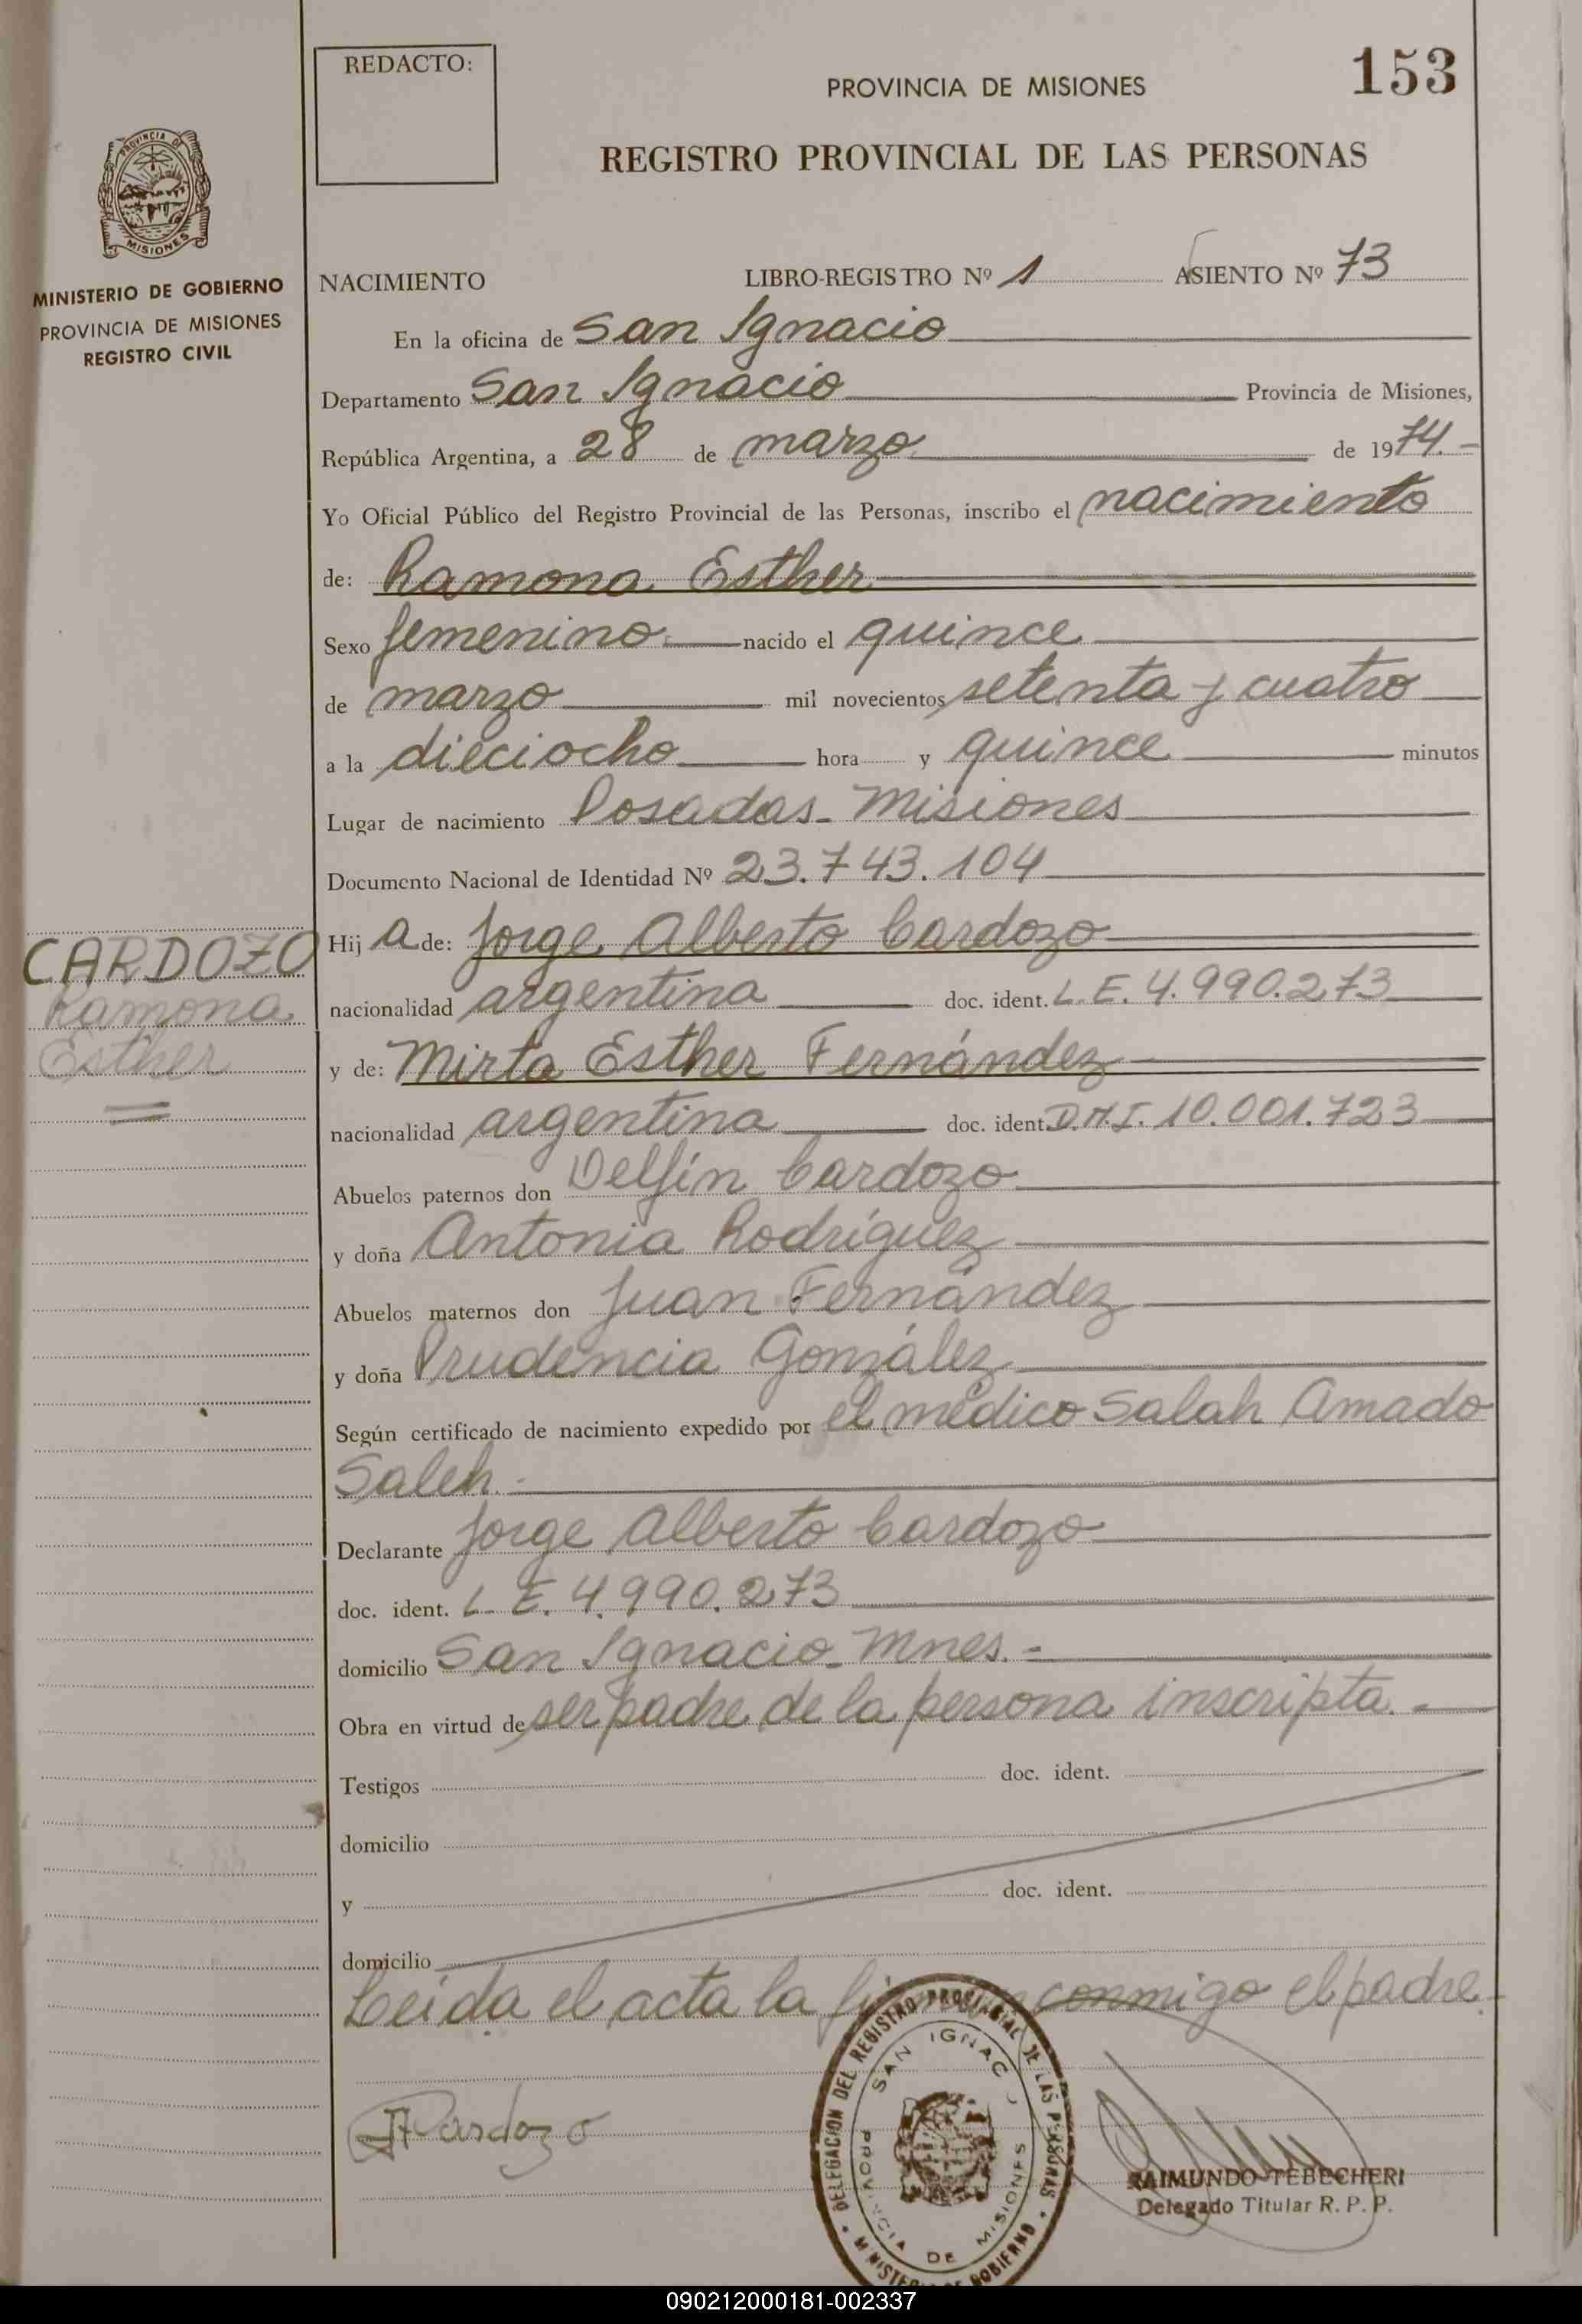 REDACTO:
PROVINCIA DE MISIONES
153
REGISTRO PROVINCIAL DE LAS PERSONAS
PROVINCIA DE
MISIONES
MINISTERIO DE GOBIERNO
PROVINCIA DE MISIONES
REGISTRO CIVIL
NACIMIENTO LIBRO-REGISTRO Nº 1 ASIENTO Nº 73
En la oficina de San Ignacio
Departamento San Ignacio Provincia de Misiones,
República Argentina, a 28 de marzo de 1974.-
Yo Oficial Público del Registro Provincial de las Personas, inscribo el nacimiento
de: Ramona Esther
Sexo femenino nacido el quince
de marzo mil novecientos setenta y cuatro
a la dieciocho hora y quince minutos
Lugar de nacimiento Posadas - Misiones
Documento Nacional de Identidad Nº 23.743.104
CARDOZO
Ramona
Esther
Hij a de: Jorge Alberto Cardozo
nacionalidad argentina doc. ident. L.E. 4.990.273
y de: Mirta Esther Fernández
nacionalidad argentina doc. ident. D.N.I. 10.001.723
Abuelos paternos don Delfín Cardozo
y doña Antonia Rodríguez
Abuelos maternos don Juan Fernández
y doña Prudencia González
Según certificado de nacimiento expedido por el médico Salah Amado
Saleh.-
Declarante Jorge Alberto Cardozo
doc. ident. L.E. 4.990.273
domicilio San Ignacio - Mnes.-
Obra en virtud de ser padre de la persona inscripta.-
Testigos doc. ident.
domicilio
y doc. ident.
domicilio
Leida el acta la conmigo el padre.-
Cardozo
DELEGACION DEL REGISTRO PROVINCIAL DE LAS PERSONAS
SAN IGNACIO
PROVINCIA DE MISIONES
MINISTERIO DE GOBIERNO
RAIMUNDO TEBECHERI
Delegado Titular R. P. P.
090212000181-002337